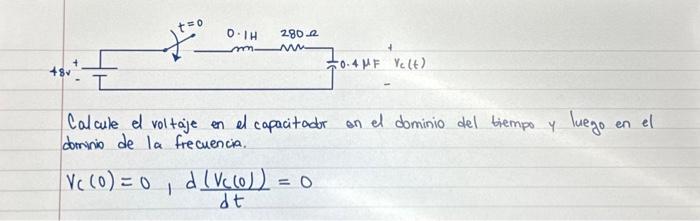 t=0
0.1H 280Ω
48v + - 0.4 μF + Vc(t) -
Calcule el voltaje en el capacitador en el dominio del tiempo y luego en el
dominio de la frecuencia.
Vc(0) = 0 , d(Vc(0))/dt = 0